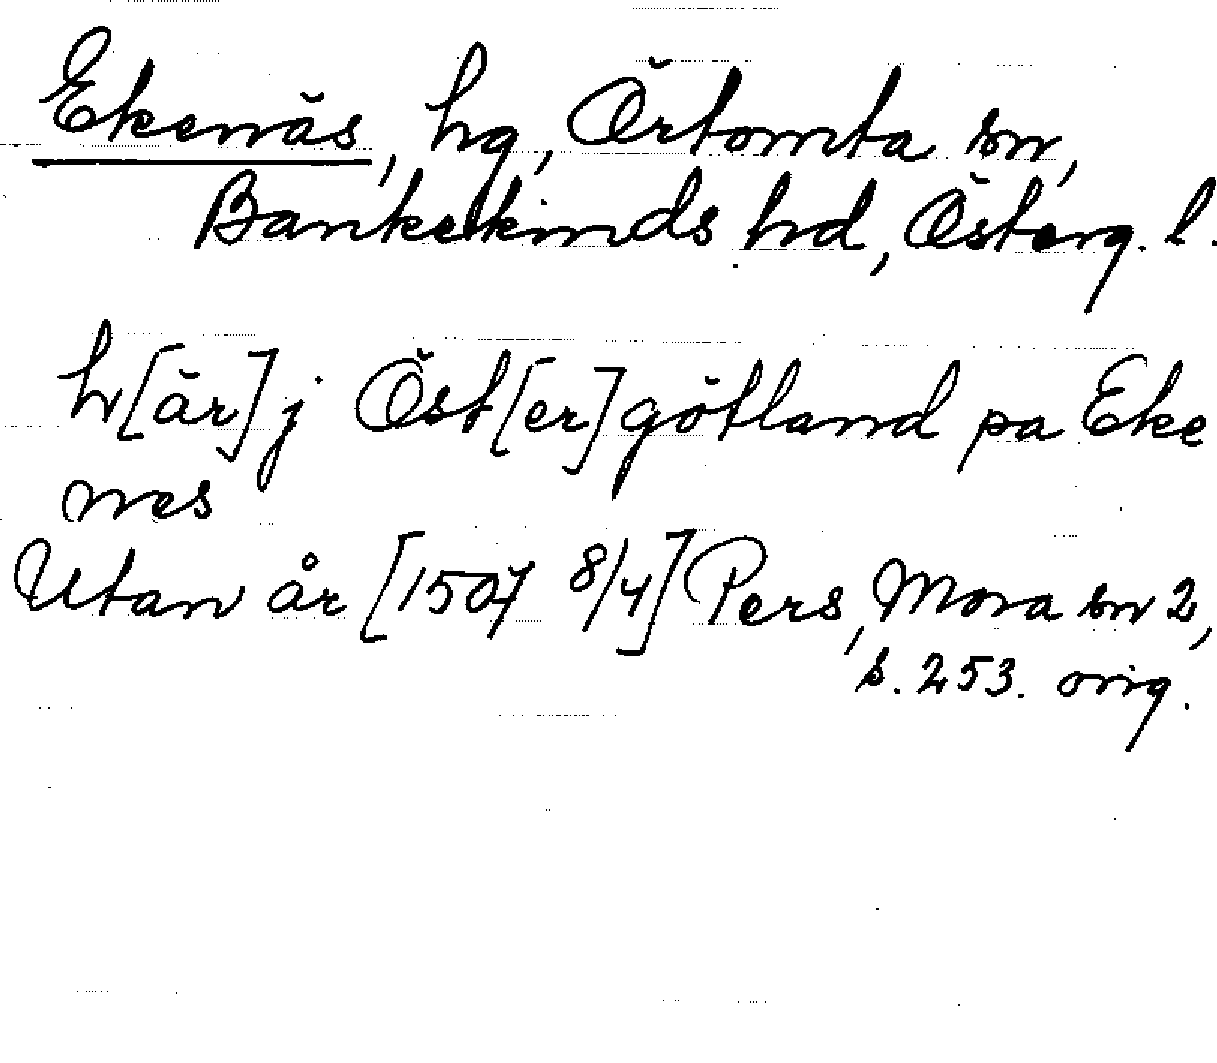 Ekenäs, hg, Örtomta sn,
Bankekinds hd, Österg. l.
h[är] j Öst[er]götland pa Eke
nes
Utan år [1507 8/4] Pers, Mora sn 2,
s. 253. orig.